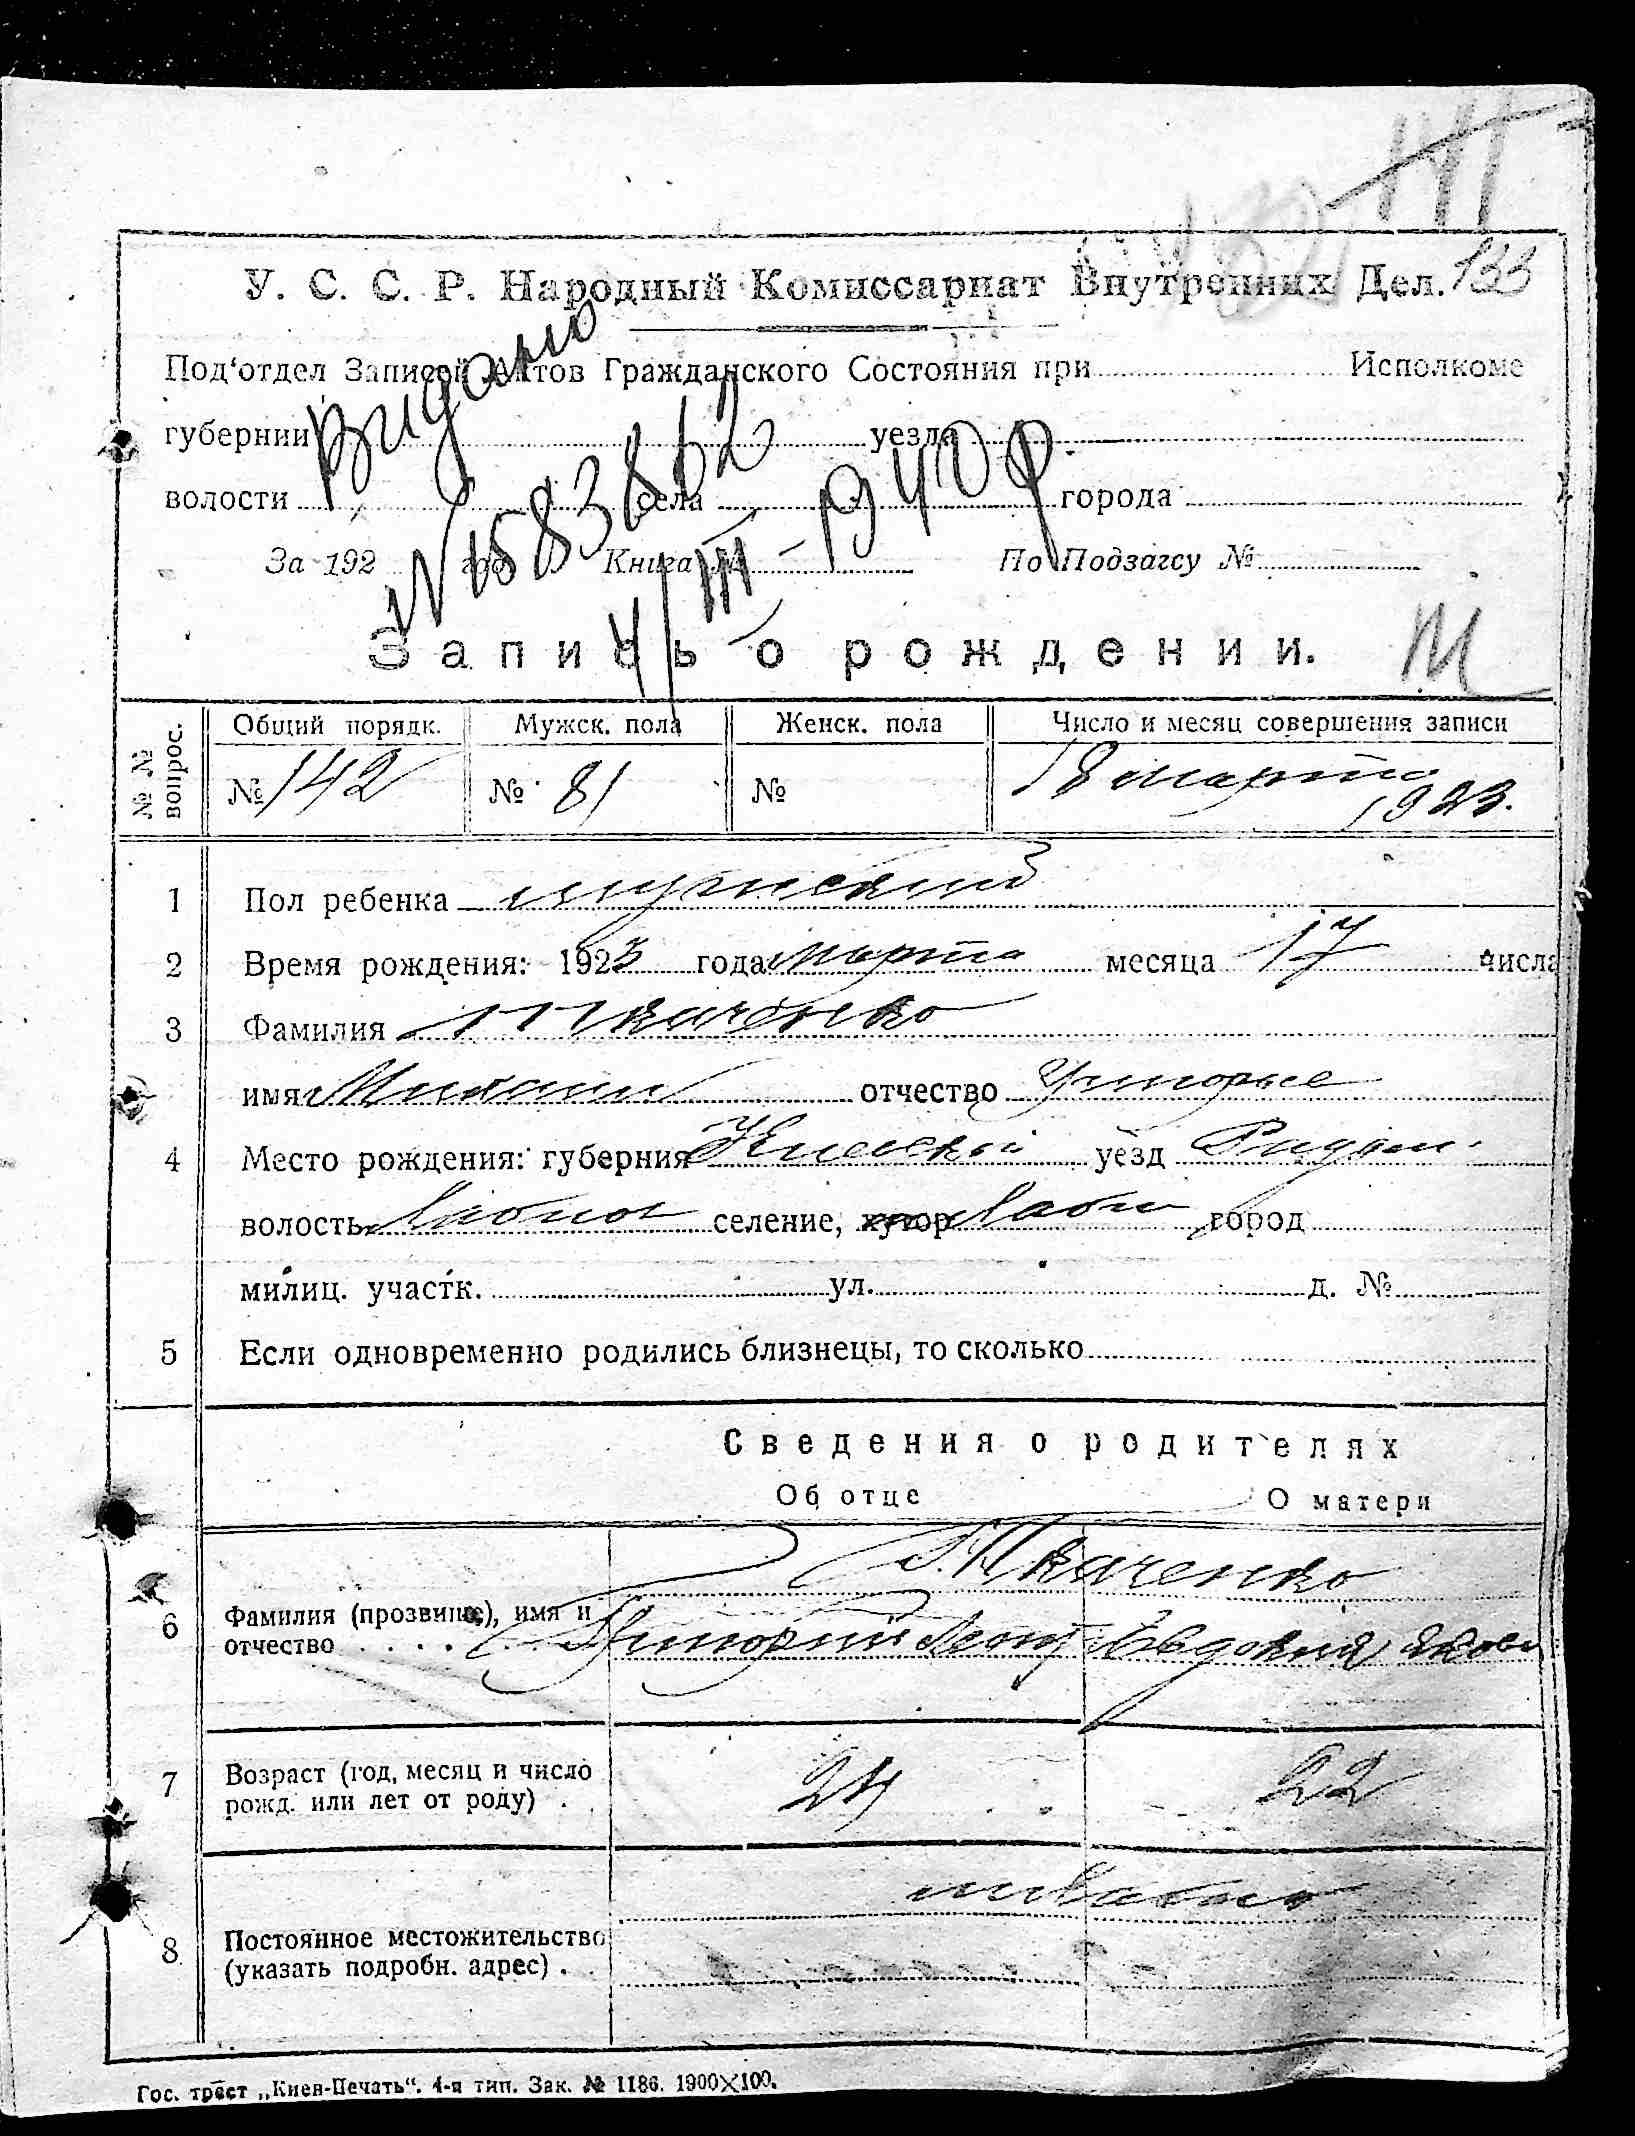 У. С. С. Р. Народный Комиссариат Внутренних Дел. 133
Под‘отдел Записей Актов Гражданского Состояния при Исполкоме
губернии уезда
волости села города
За 192 год Книга № По Подзагсу №
Видано
№ 583862
4/III-1940 р.
Запись о рождении.
№ № вопрос.
Общий порядк. Мужск. пола Женск. пола Число и месяц совершения записи
№ 142 № 81 № 18 марта
1923.
1 Пол ребенка мужской
2 Время рождения: 1923 года марта месяца 17 числа
3 Фамилия Ткаченко
имя отчество
4 Место рождения: губерния Киевской уезд
волость селение, хутор город
милиц. участк. ул. д. №
5 Если одновременно родились близнецы, то сколько
Сведения о родителях
Об отце О матери
Ткаченко
6 Фамилия (прозвище), имя и
отчество . . . . Григорий Леонт Евдокия Яковл
7 Возраст (год, месяц и число
рожд. или лет от роду) . 24 22
8 Постоянное местожительство
(указать подробн. адрес) .
Гос. трест „Киев-Печать“. 4-я тип. Зак. № 1186. 1900×100.